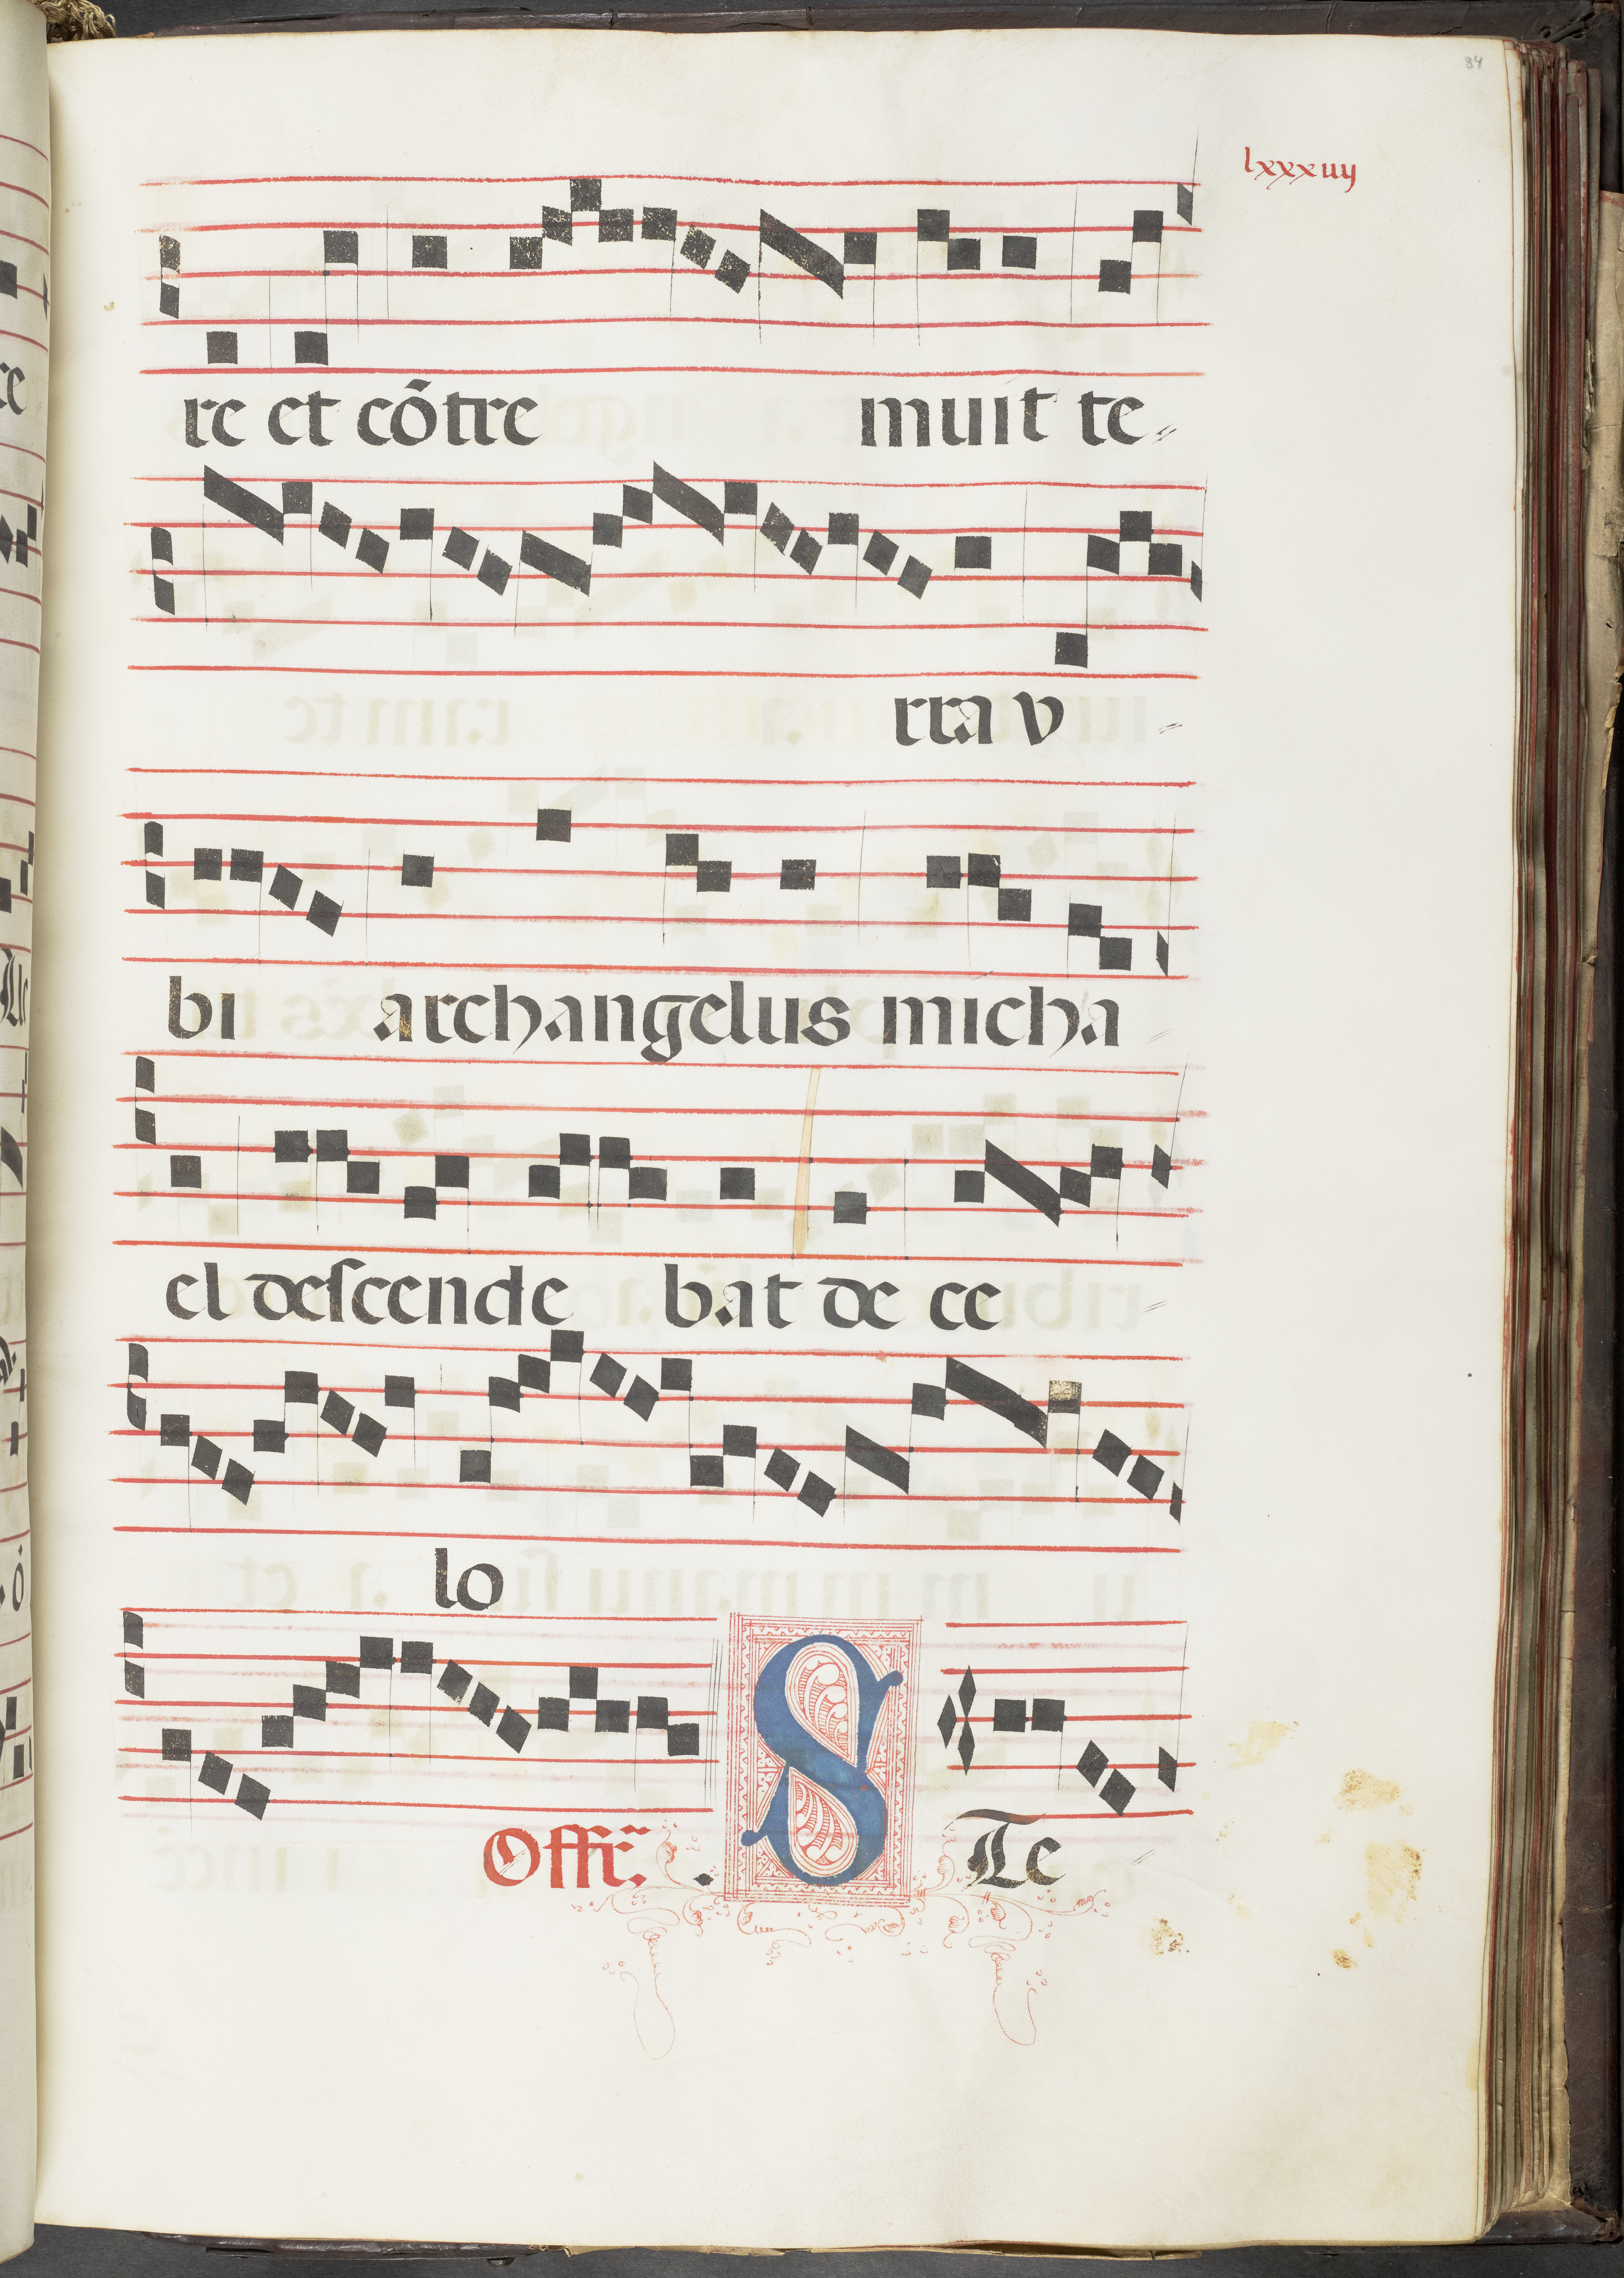 84
lxxxiiij
re et cõtre muit te
rra v
bi archangelus micha
el descende bat de ce
lo
Offr̃. STe